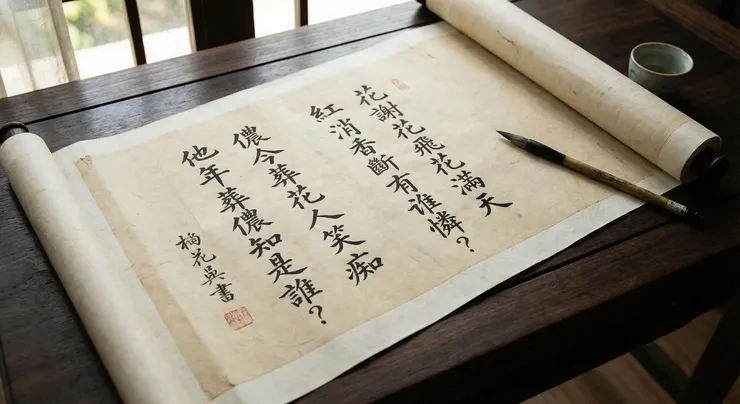 花謝花飛花滿天
紅消香斷有誰憐？
儂今葬花人笑痴
他年葬儂知是誰？
花吳書